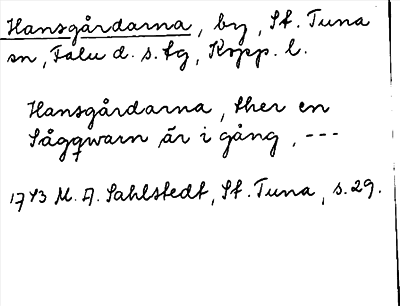 Hansgårdarna, by, St. Tuna
sn, Falu d. s. fg, Kopp. l.
Hansgårdarna, ther en
Sågqwarn är i gång, ---
1743 M. A. Sahlstedt, St. Tuna, s. 29.